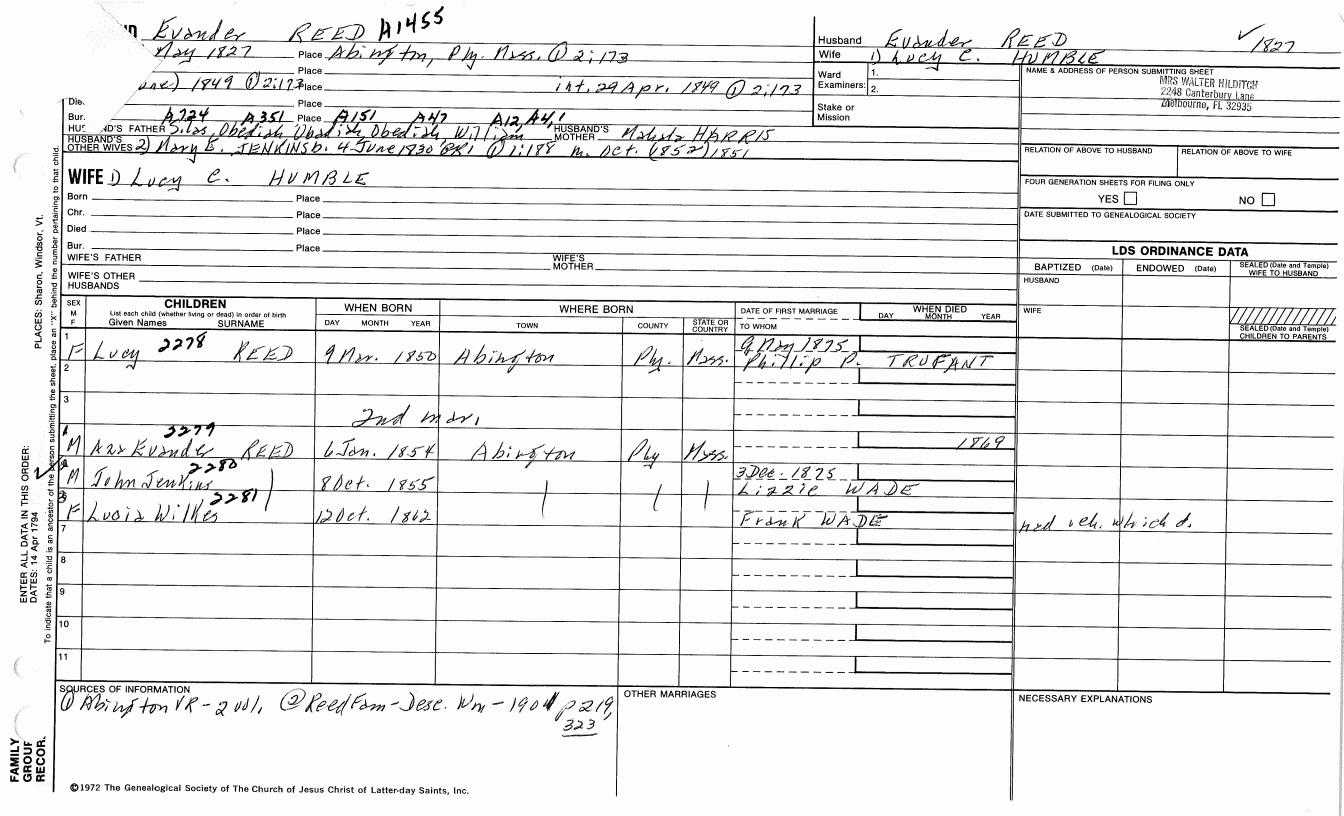 Evander REED A1455
May 1827 Place Abington, Ply. Mass. ① 2:173
Place
une) 1849 ① 2:173 Place int. 29 Apr. 1849 ① 2:173
Die. Place
Bur. A724 A351 Place A151 A47 A12, A4,1
HUS ND'S FATHER Silas, Obediah Obadiah Obediah William HUSBAND'S MOTHER HARRIS
HUSBAND'S OTHER WIVES 2) Mary E. JENKINS b. 4 June 1830 ① 1:188 m. Oct. (1852) 1851
Husband Evander REED 1827
Wife 1) Lucy C. HUMBLE
Ward Examiners: 1.
2.
Stake or Mission
NAME & ADDRESS OF PERSON SUBMITTING SHEET
MRS WALTER HILDITCH
2248 Canterbury Lane
Melbourne, FL 32935
RELATION OF ABOVE TO HUSBAND RELATION OF ABOVE TO WIFE
FOUR GENERATION SHEETS FOR FILING ONLY
YES NO
DATE SUBMITTED TO GENEALOGICAL SOCIETY
WIFE 1) Lucy C. HUMBLE
Born Place
Chr. Place
Died Place
Bur. Place
WIFE'S FATHER WIFE'S MOTHER
WIFE'S OTHER HUSBANDS
LDS ORDINANCE DATA
BAPTIZED (Date) ENDOWED (Date) SEALED (Date and Temple) WIFE TO HUSBAND
HUSBAND
WIFE
SEALED (Date and Temple) CHILDREN TO PARENTS
SEX M F CHILDREN WHEN BORN WHERE BORN DATE OF FIRST MARRIAGE WHEN DIED
List each child (whether living or dead) in order of birth
Given Names SURNAME DAY MONTH YEAR TOWN COUNTY STATE OR COUNTRY TO WHOM DAY MONTH YEAR
1 2278 9 May 1875
F Lucy REED 9 Mar. 1850 Abington Ply. Mass. Phillip P. TRUFANT
2
3 2nd mar.
2279
M Asa Evander REED 6 Jan. 1854 Abington Ply Mass. 1869
2280 3 Dec. 1875
M John Jenkins 8 Oct. 1855 Lizzie WADE
2281
F Lucia Wilkes 12 Oct. 1862 Frank WADE
7
8
9
10
11
SOURCES OF INFORMATION
① Abington VR - 2 vol. ② Reed Fam - Desc. Wm - 1901 p 219,
323
OTHER MARRIAGES
NECESSARY EXPLANATIONS
©1972 The Genealogical Society of The Church of Jesus Christ of Latter-day Saints, Inc.
PLACES: Sharon, Windsor, Vt.
ENTER ALL DATA IN THIS ORDER:
DATES: 14 Apr 1794
To indicate that a child is an ancestor of the person submitting the sheet, place an "X" behind the number pertaining to that child.
FAMILY
GROUP
RECOR.